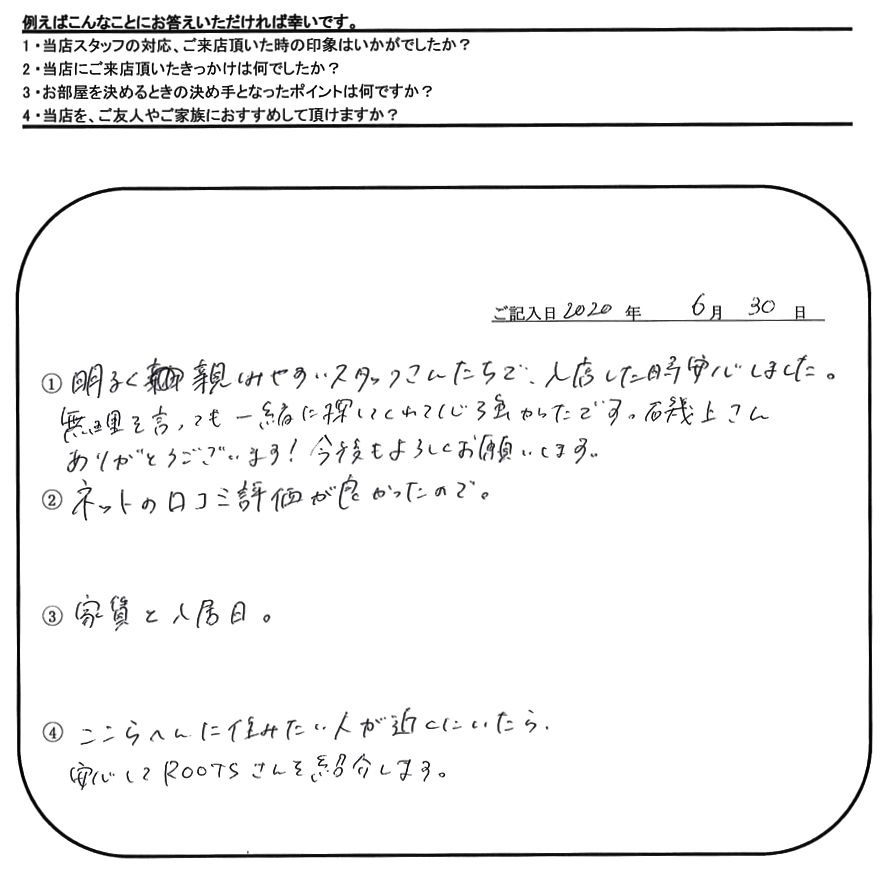 例えばこんなことにお答えいただければ幸いです。
1・当店スタッフの対応、ご来店頂いた時の印象はいかがでしたか？
2・当店にご来店頂いたきっかけは何でしたか？
3・お部屋を決めるときの決め手となったポイントは何ですか？
4・当店を、ご友人やご家族におすすめして頂けますか？
ご記入日2020 年 6月 30 日
① 明るく親しみやすいスタッフさんたちで、入店した時安心しました。
無理を言っても一緒に探してくれて心強かったです。磯上さん
ありがとうございます！今後もよろしくお願いします。
② ネットの口コミ評価が良かったので。
③ 家賃と入居日。
④ ここらへんに住みたい人が近くにいたら、
安心してROOTSさんを紹介します。